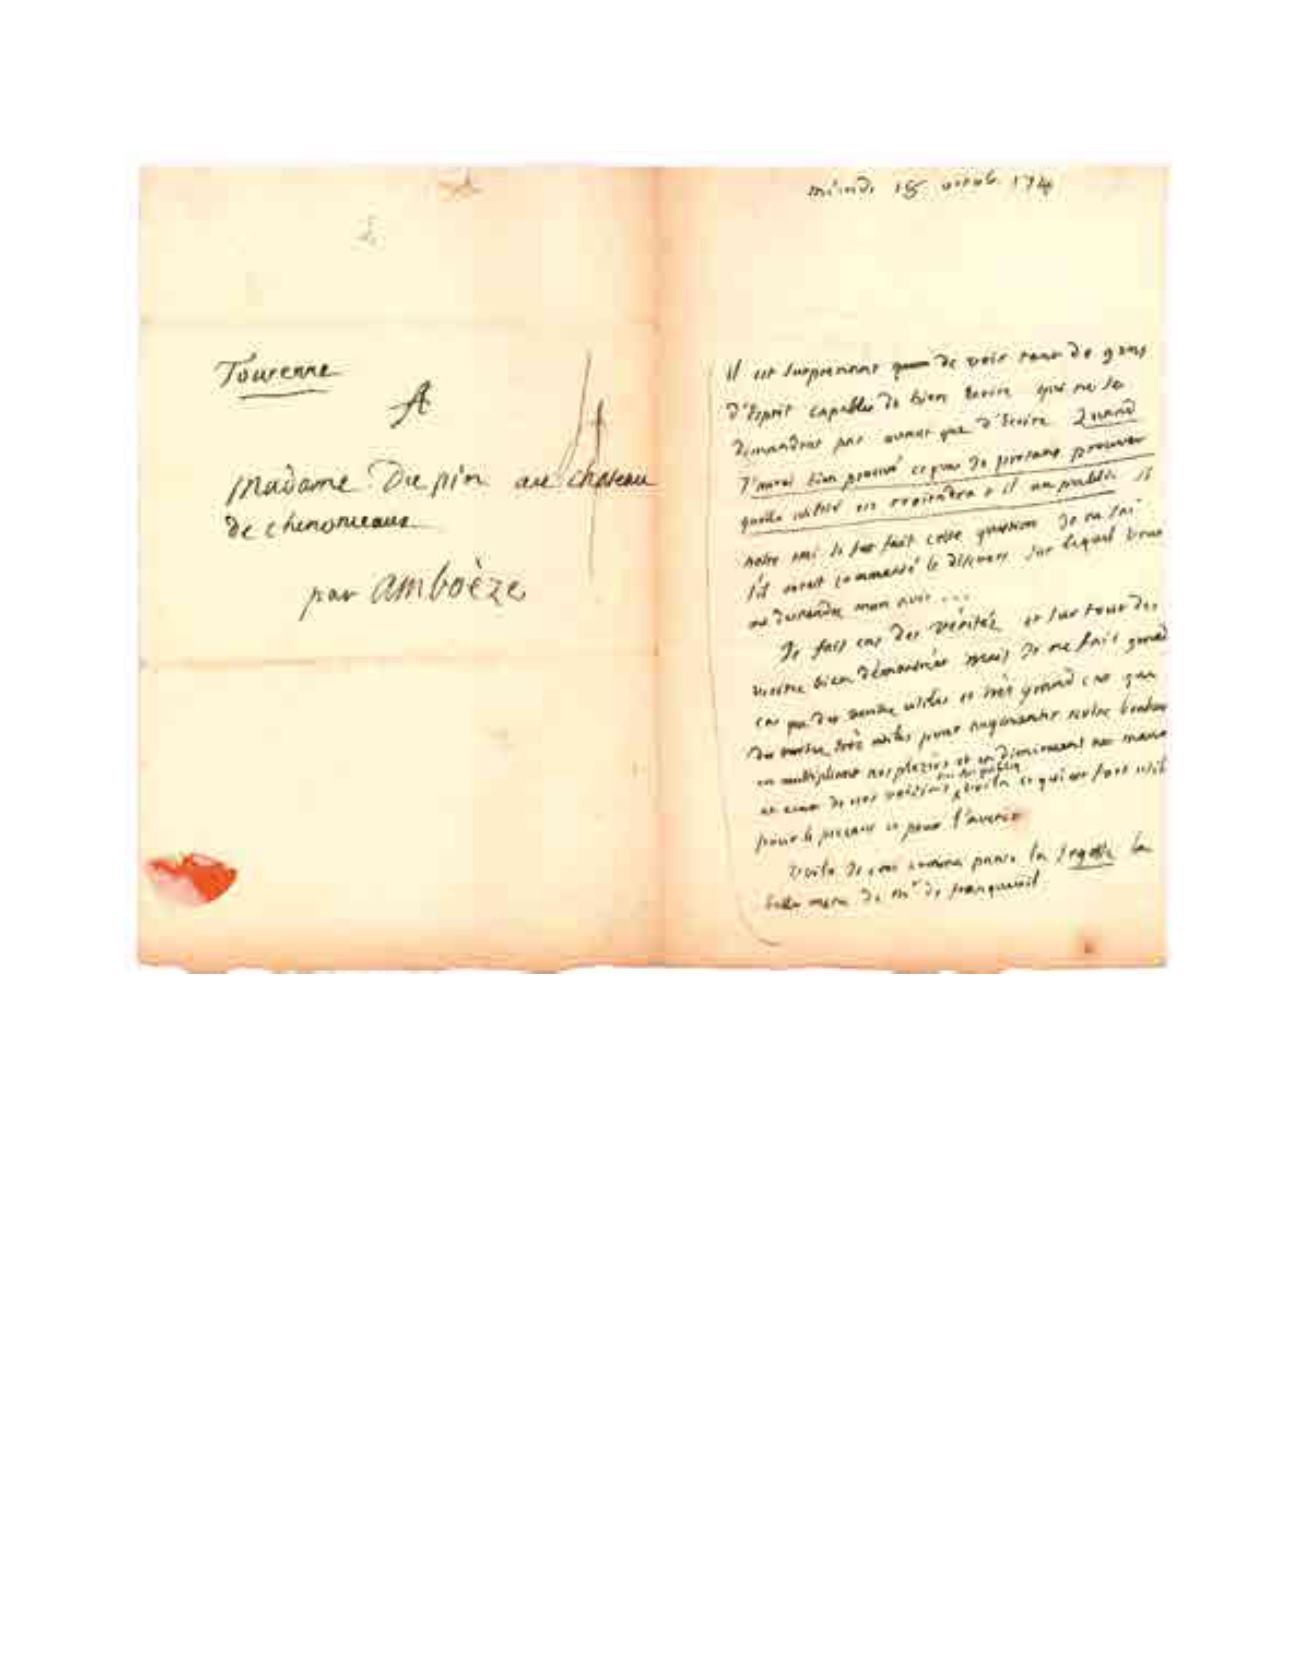 Tourenne
A
Madame Du pin au chateau
de chenonceaux
par amboèze
octob. 174
il est surprenant de voir tant de gens
d'Esprit capables de bien Ecrire qui ne se
demandent pas avant que d'Ecrire Quand
J'aurai bien prouvé ce que Je pretens prouver
quelle utilité en reviendra t il au public si
notre ami se fut fait cette question Je ne sai
s'il auroit commencé le discours sur lequel vous
me demandez mon avis ...
Je fais cas des vérités et sur tout des
vérités bien démontrées mais Je ne fais grand
cas que des vérités utiles et très grand cas que
des vérités très utiles pour augmenter notre bonheur
en multipliant nos plezirs et en diminuant nos maux
et ceux de nos voizins, voila ce qui est fort utile
pour le prezent et pour l'avenir
Voila Je croi comme pense la la
belle mere de Mr de francueuil